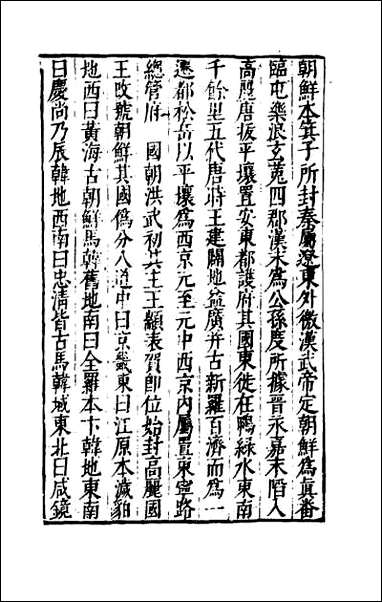 朝鮮本箕子所封秦屬遼東外徼漢武帝定朝鮮爲眞番
臨屯樂浪玄菟四郡漢末爲公孫度所據晉永嘉末陷入
高麗唐拔平壤置安東都護府其國東徙在鴨綠水東南
千餘里五代唐時王建闢地益廣并古新羅百濟而爲一
遷都松岳以平壤爲西京元至元中西京內屬置東寧路
總管府　國朝洪武初其主王顓表賀卽位始封高麗國
王改號朝鮮其國爲分八道中曰京畿東曰江原本濊貊
地西曰黃海古朝鮮馬韓舊地南曰全羅本卞韓地東南
曰慶尚乃辰韓地西南曰忠清皆古馬韓域東北曰咸鏡